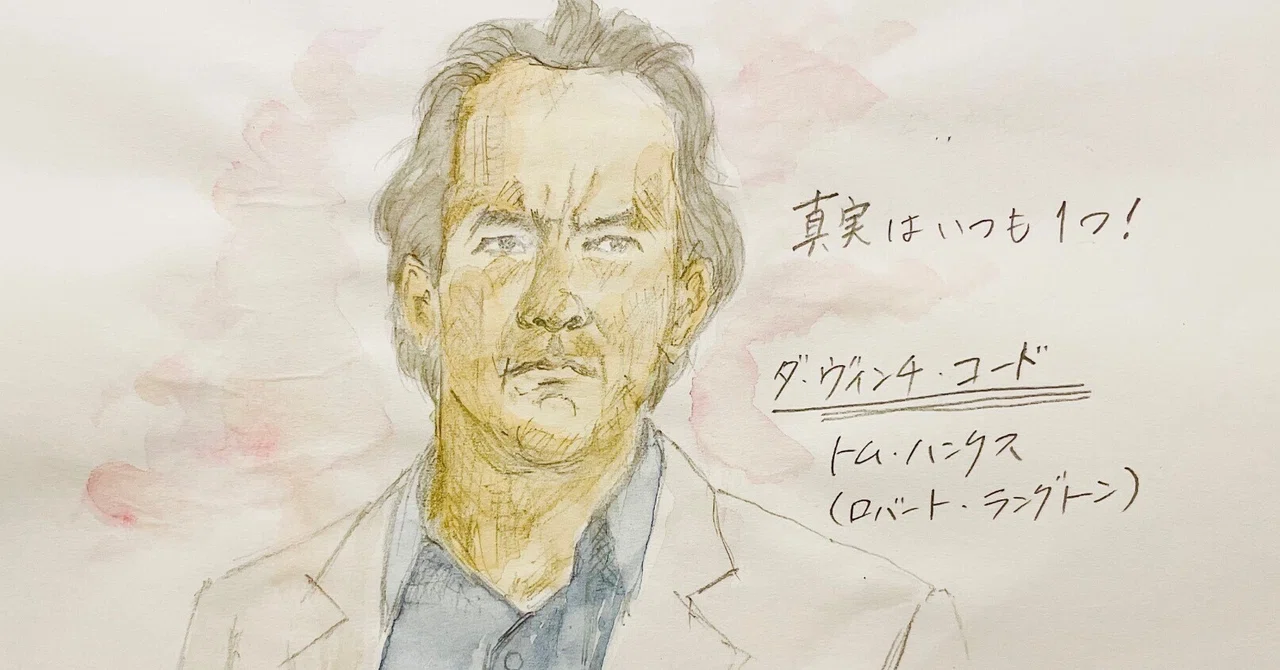 真実はいつも1つ!
ダ・ヴィンチ・コード
トム・ハンクス
(ロバート・ラングトーン)